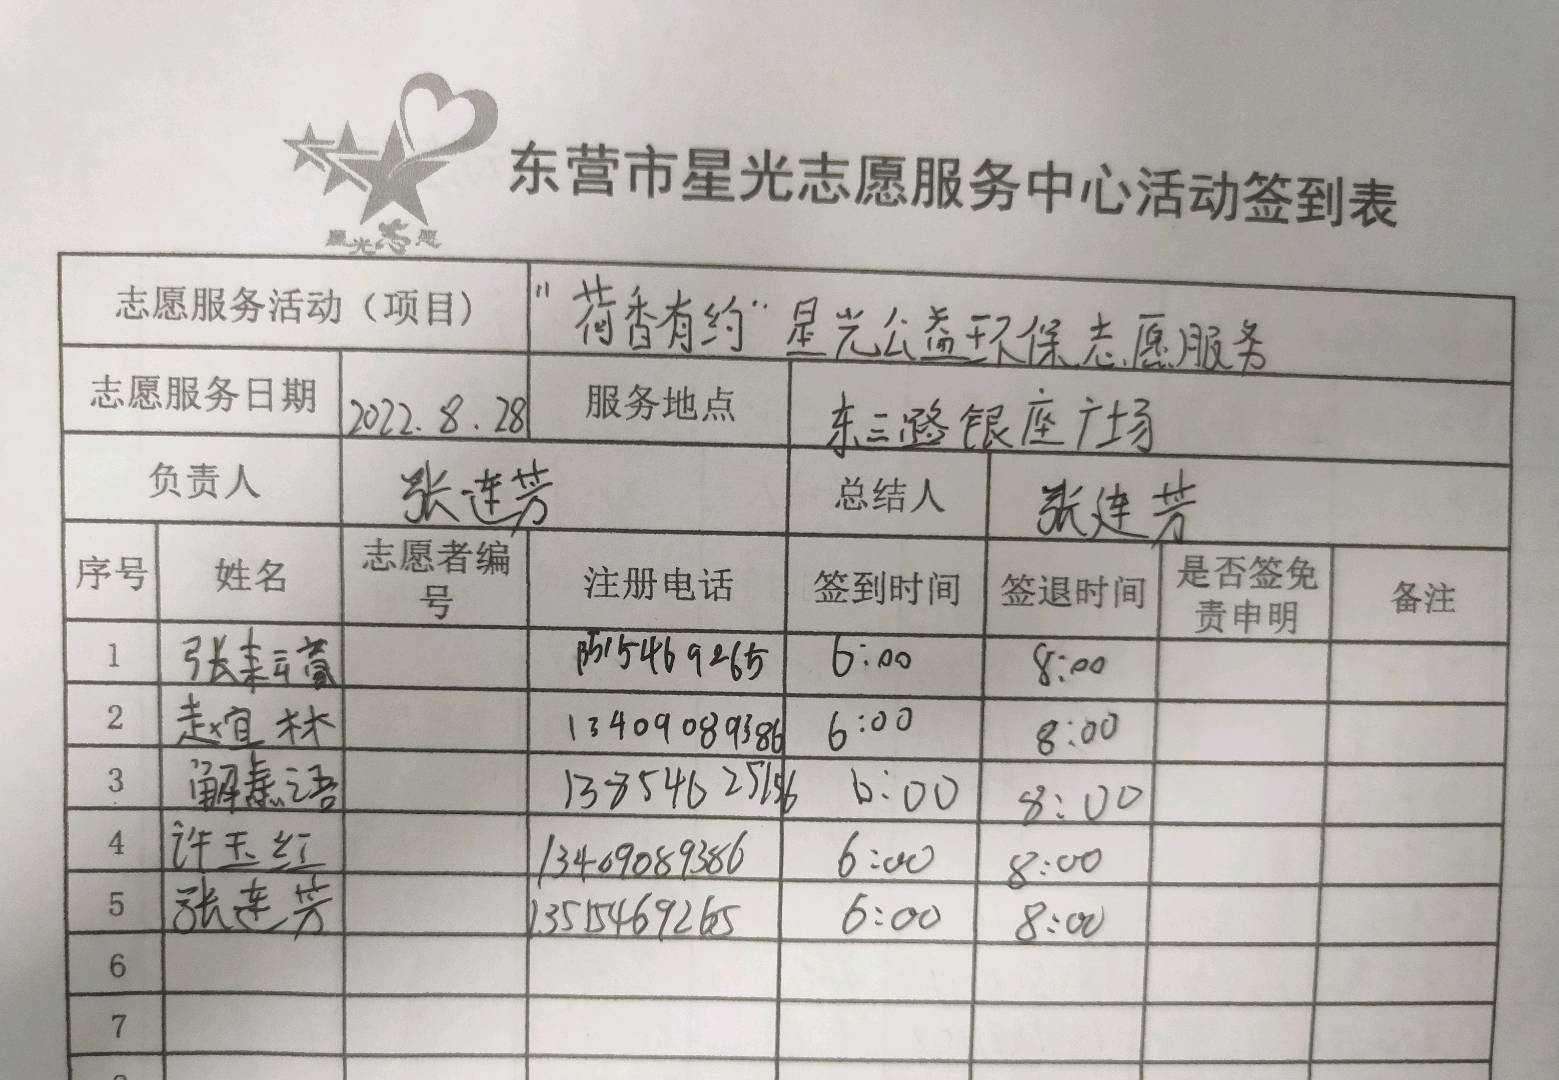 星光志愿
东营市星光志愿服务中心活动签到表
志愿服务活动（项目） "荷香有约"星光公益环保志愿服务
志愿服务日期 2022.8.28 服务地点 东三路银座广场
负责人 张连芳 总结人 张连芳
序号 姓名 志愿者编号 注册电话 签到时间 签退时间 是否签免责申明 备注
1 13515469265 6:00 8:00
2 赵宜林 13409089386 6:00 8:00
3 6:00 8:00
4 许玉红 13409089386 6:00 8:00
5 张连芳 13515469265 6:00 8:00
6
7